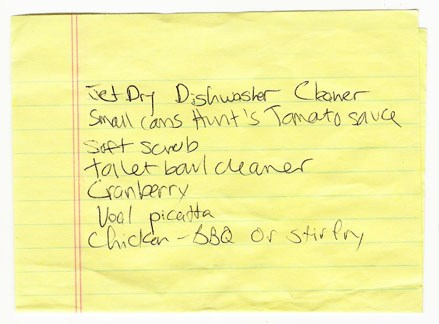 Jet Dry Dishwasher Cleaner
Small cans Hunt's Tomato sauce
Soft scrub
toilet bowl cleaner
Cranberry
Veal picatta
Chicken - BBQ or stirfry